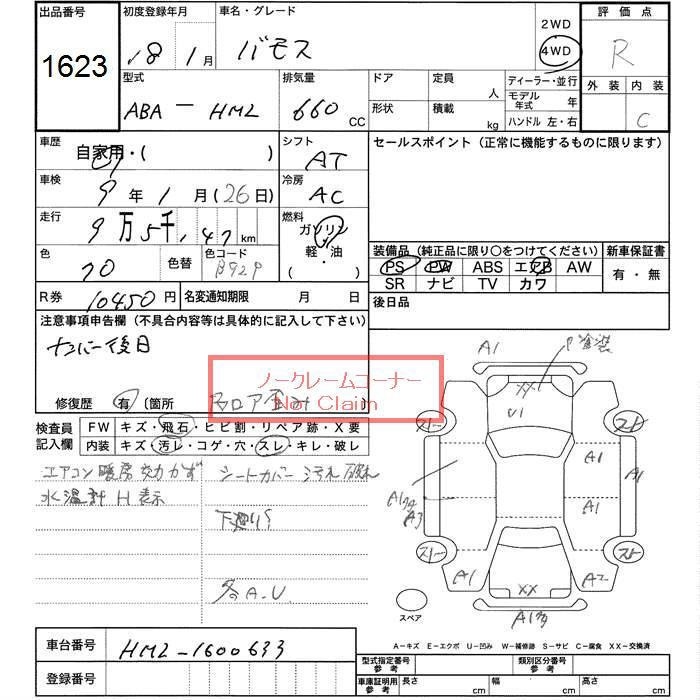 出品番号 初度登録年月 車名・グレード 2WD 評価点
1623 18 1月 バモス 4WD R
型式 排気量 ドア 定員 人 ディーラー・並行 外装 内装
ABA - HM2 660 CC 形状 積載 kg モデル年式 年 C
ハンドル 左・右
車歴 自家用・( ) シフト AT セールスポイント (正常に機能するものに限ります)
車検 9年 1月 (26日) 冷房 AC
走行 9万5千,147 km 燃料 ガソリン
軽・油
( ・ )
色 70 色替 色コード B92P
装備品 (純正品に限り〇をつけてください) 新車保証書
PS PW ABS エアB AW 有・無
SR ナビ TV カワ
R券 10450円 名変通知期限 月 日 後日品
注意事項申告欄 (不具合内容等は具体的に記入して下さい)
ナンバー後日
ノークレームコーナー
Not Claim
修復歴 有 〔箇所 フロア
検査員記入欄 FW キズ・飛石・ヒビ割・リペア跡・X要
内装 キズ・汚レ・コゲ・穴・スレ・キレ・破レ
エアコン暖房効かず シートカバー汚れ 破れ
水温計H表示
下廻り?
各A.U.
A1 P塗装
XX
U1
A1
A1
A1
A1
A2
XX
スペア
A-キズ E-エクボ U-凹み W-補修跡 S-サビ C-腐食 XX-交換済
車台番号 HM2-1600633
登録番号
型式指定番号 参考 類別区分番号 参考
車庫証明用 参考 長さ cm 幅 cm 高さ cm